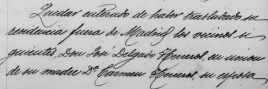 Quedar enterado de haber trasladado su
residencia fuera de Madrid los vecinos si
guientes, Don José Delgado Herreros, en union
de su madre Dª Carmen Herreros, su esposa